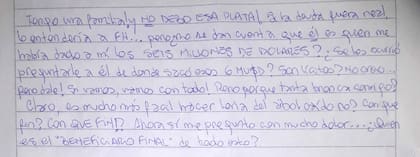 Tengo una familia y NO DEBO ESA PLATA! Si la deuda fuera real,
lo entendería a FH... pero no se dan cuenta que él es quien me
habría dado a mí los SEIS MILLONES DE DOLARES? ¿Se les ocurrió
preguntarle a él de donde sacó esos 6 MUSD? Son Vatos? No creo...
Pero dale! Si vamos, vamos con todo! Pero porque tanta bronca conmigo?
Claro, es mucho más fácil hacer leña del árbol caído no? Con que
fin? Con QUE FIN!? Ahora sí me pregunto con mucho dolor...¿Quien
es el "BENEFICIARIO FINAL" de todo esto?